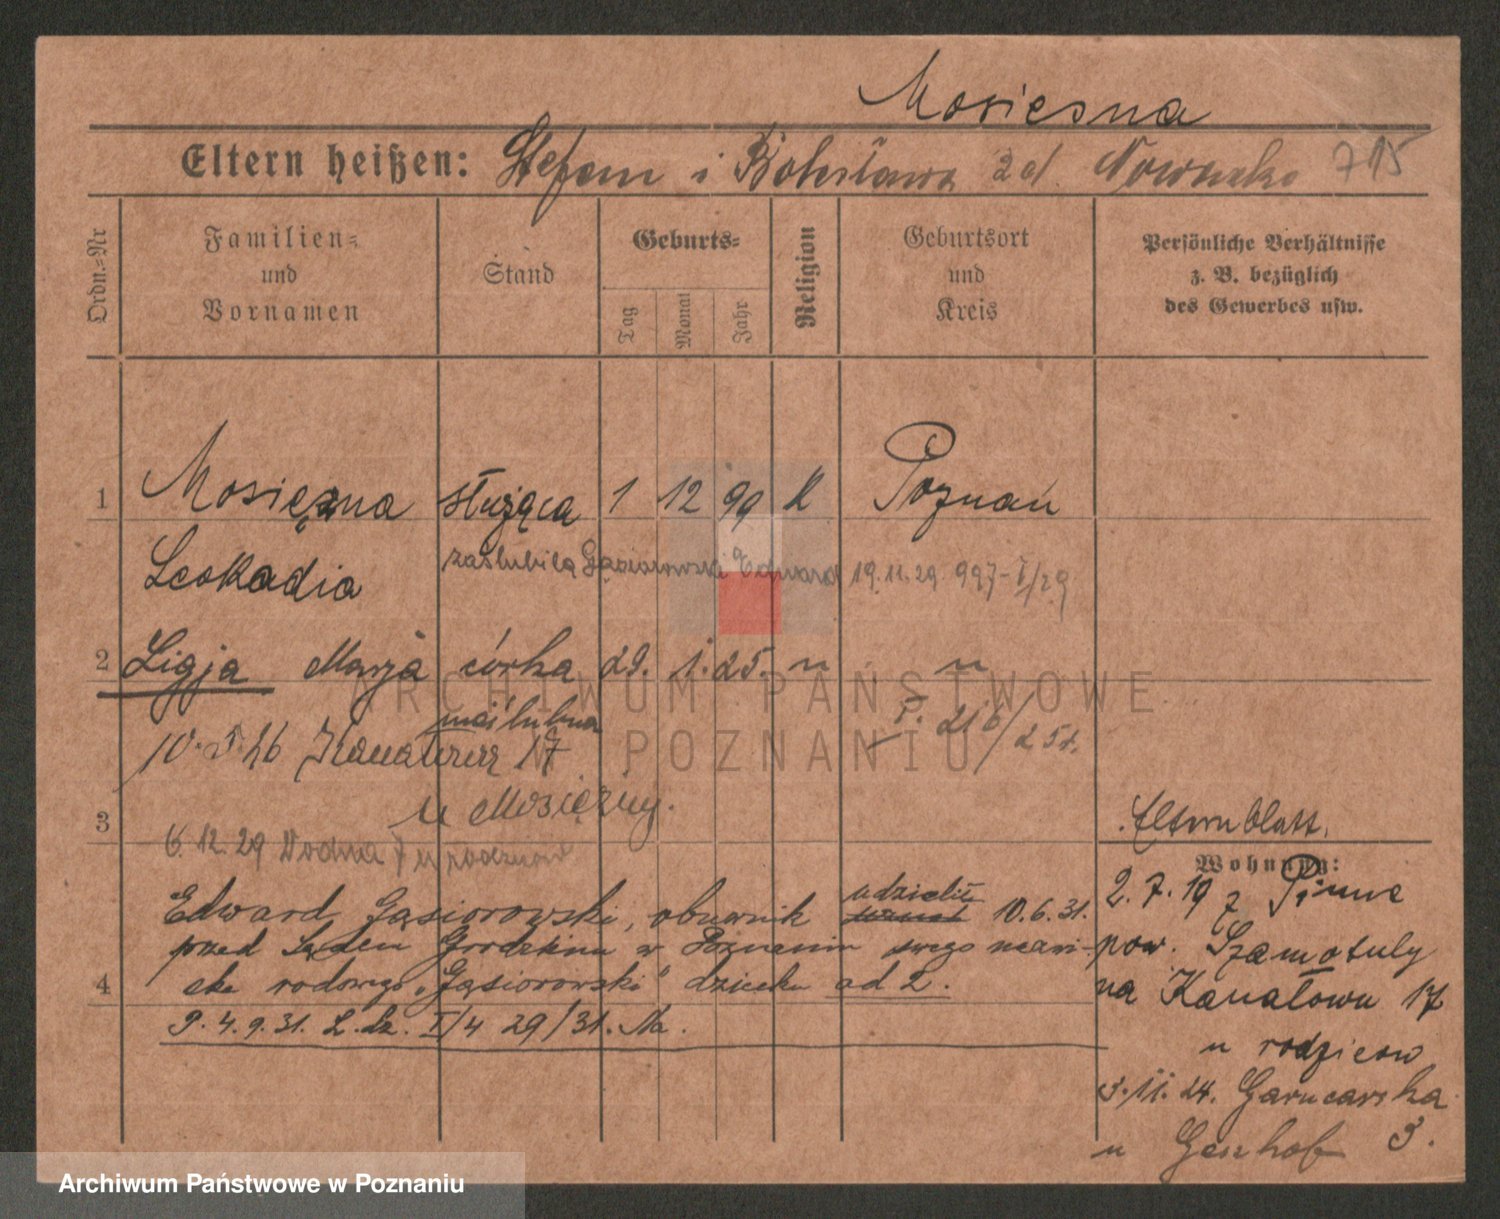 Mosiesna
Eltern heißen: Stefan i Bolesława zd. Nowacka 715
Ordn.=Nr
Familien=
und
Vornamen
Stand
Geburts=
Tag
Monat
Jahr
Religion
Geburtsort
und
Kreis
Persönliche Verhältnisse
z. B. bezüglich
des Gewerbes usw.
1 Mosiężna służąca 1 12 99 K Poznań
Leokadia zaślubiła Gąsiorowski Edward 19.11.29 997-I/29
2 Ligja Marja córka 29. 1. 25. " "
nieślubna
10.5.26 Kanałowa 17 I. 216/25r.
u Mosiężny.
3
6.12.29 Wodna 7 u rodziców
Edward Gąsiorowski, obuwnik udzielił 10.6.31.
przed Sądem Grodzkim w Poznaniu swego nazwi-
4 ska rodowego "Gąsiorowski" dziecku ad 2.
P. 4.9.31. L. dz. I/4 29/31. Na.
Elternblatt.
Wohnung:
2.7.19 z Pinne
pow. Szamotuły
na Kanałową 17
u rodziców
3.11.24. Garncarska
u Genhof 3.
ARCHIWUM PAŃSTWOWE
W POZNANIU
Archiwum Państwowe w Poznaniu